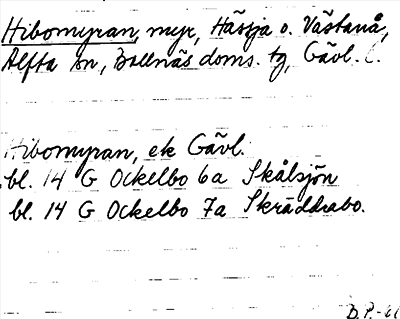 Hibomyran, myr, Hässja o. Västanå,
Alfta sn, Bollnäs doms. tg, Gävl. l.
Hibomyran, ek Gävl.
bl. 14 G Ockelbo 6a Skålsjön
bl. 14 G Ockelbo 7a Skräddrabo.
D.P.-61